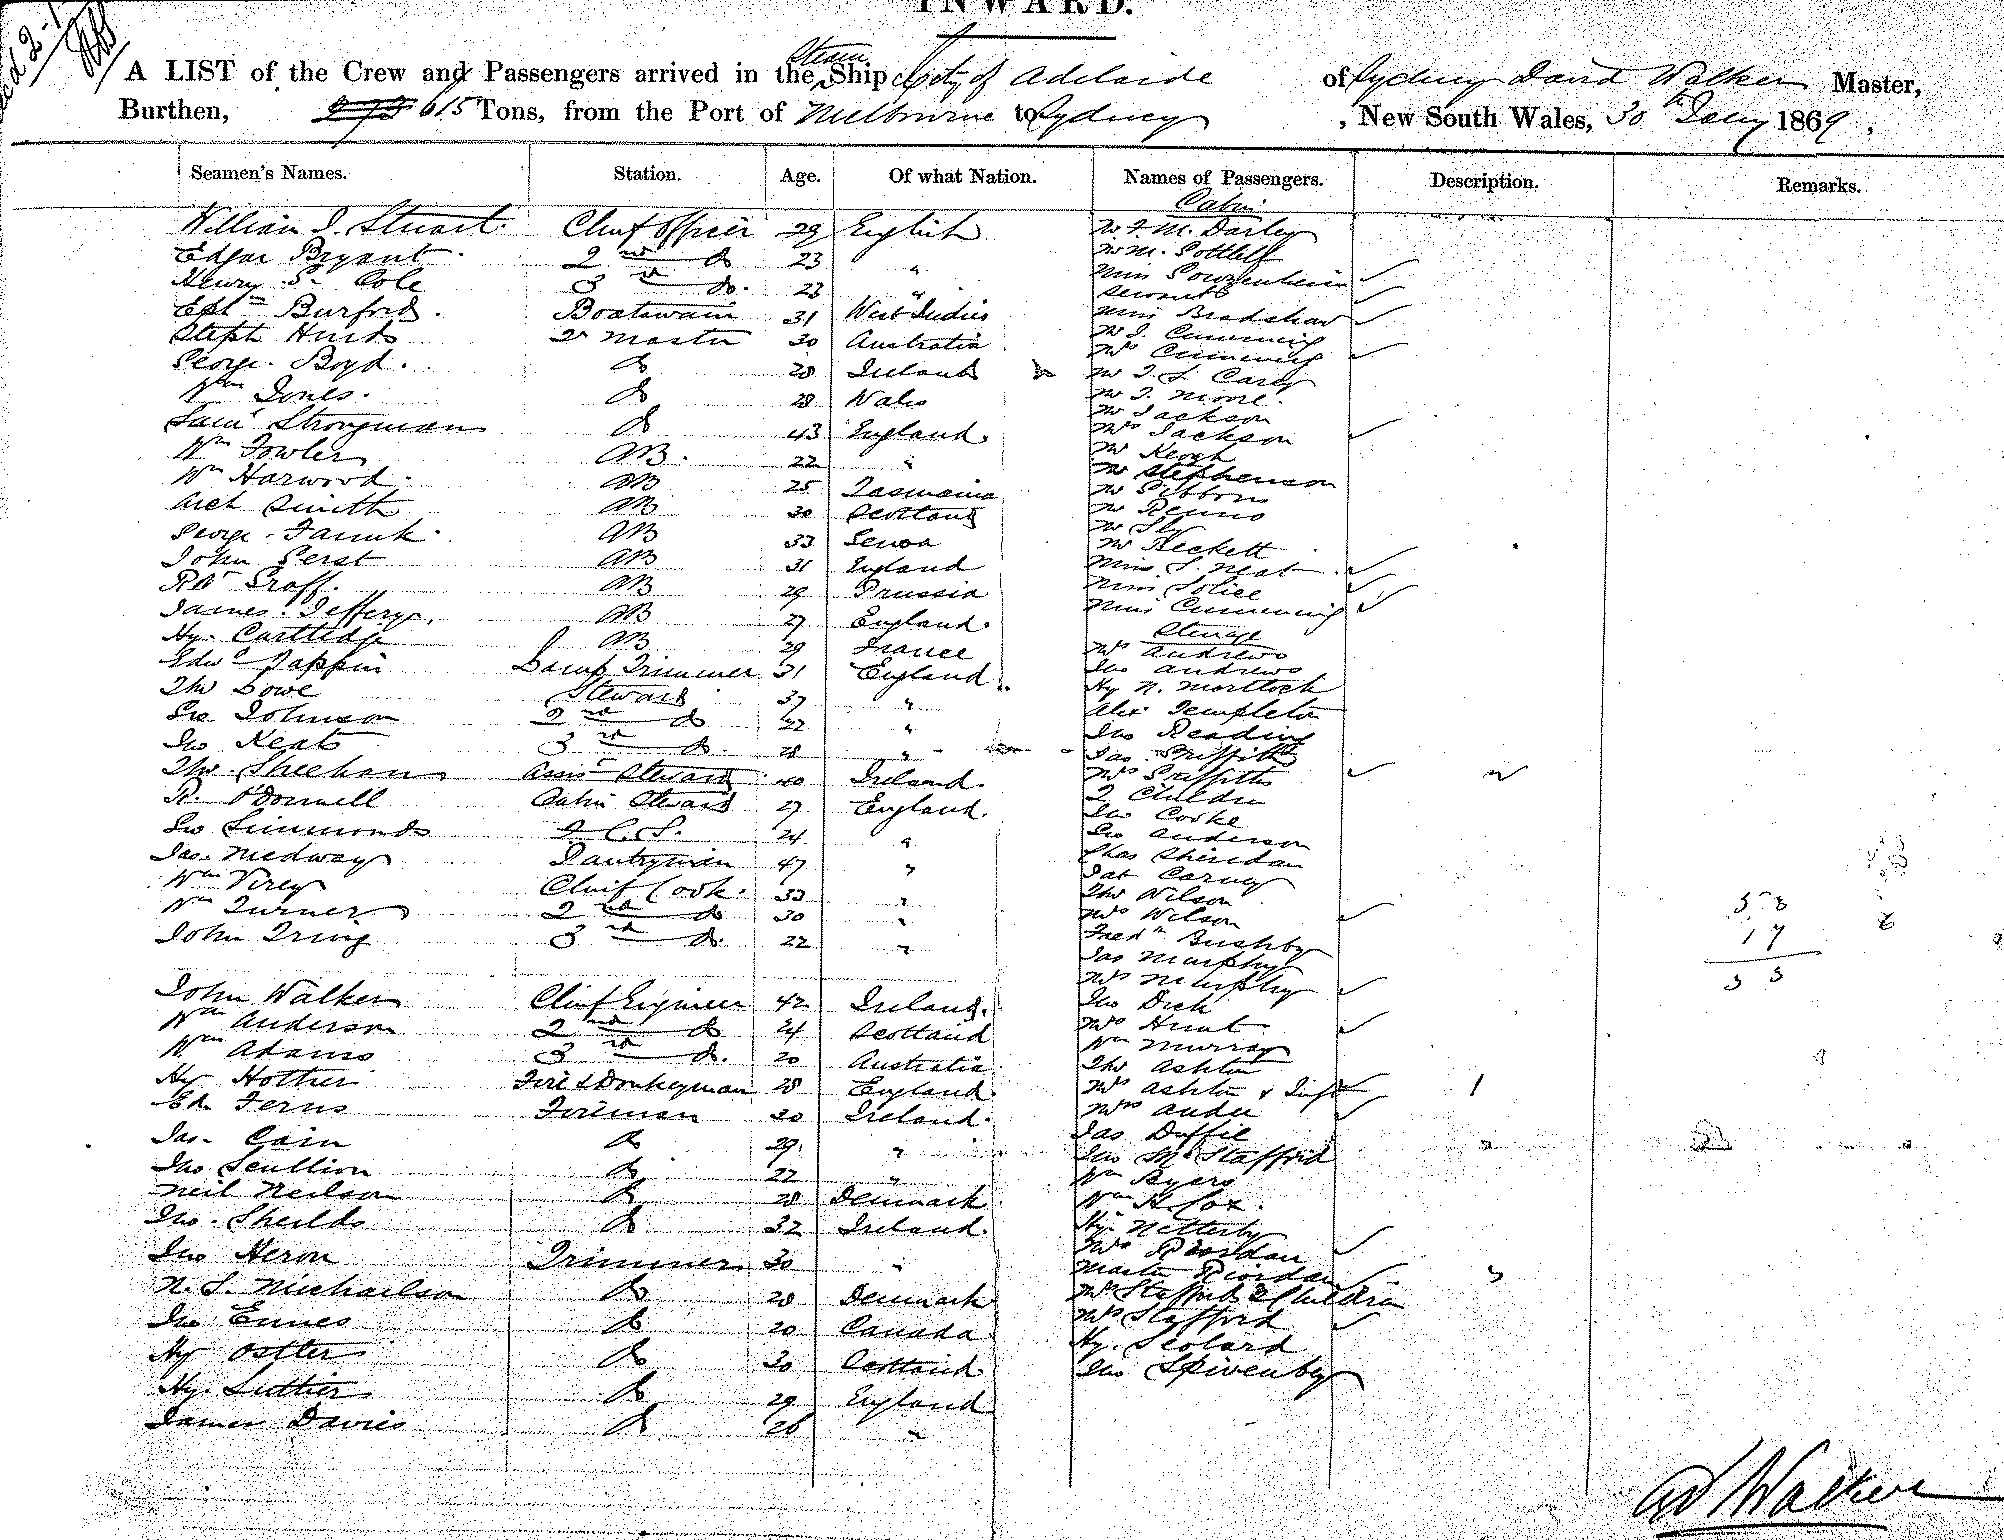 INWARD.
A LIST of the Crew and Passengers arrived in the Steam Ship City of Adelaide of Sydney David Walker Master,
Burthen, 615 Tons, from the Port of Melbourne to Sydney, New South Wales, 30th Jany 1869,
Seamen's Names. Station. Age. Of what Nation. Names of Passengers. Description. Remarks.
Cabin
William J. Stuart Chief Officer 29 English Mr F. M. Darley
Edgar Bryant 2nd do 23 " Mr M. Gottlieb
Henry S. Cole 3rd do. 23 " Miss
servant
Burford. Boatswain 31 West Indies Miss Bradshaw
Steph Hurd Qr Master 30 Australia Mr J. Cumming
Mrs Cumming
George Boyd. do 28 Ireland Mr J. S. Carey
Wm Jones. do 28 Wales Mr T. Moore.
Mr Jackson
Saml Strongman do 43 England. Mrs Jackson
Wm Fowler AB. 22 " Mr Keogh
Wm Harwood. AB 25 Tasmania Mr Stephenson
Mr Gibbons
Arch Smith AB 30 Scotland Mr Rennie
Mr Sly
George AB 33 Genoa Mr Heckett
John Gerst AB 31 England Miss S. Neat
Rd Groff. AB 29 Prussia Miss Jolice
James Jefferys. AB 27 England. Miss Cumming
Steerage
Hy. Cartledge AB 29 France Mrs Andrews
Edwd Pappin Lamp Trimmer 31 England Jno Andrews
Thos Lowe Steward 37 " Hy N. Mortlock
Alex Templeton
Geo Johnson 2nd do 22 " Jno Reading
Jno Keats 3rd do. 28 " Jas Griffiths
Thos. Sheehan Assist Steward 40 Ireland. Mrs Griffiths
R. O'Donnell Cabin Steward 27 England. 2 Children
Jno Cooke
Geo Simmonds 2 C. S. 24 " Geo Anderson
Jas. Medway Pantryman 47 " Chas Sheridan
Pat Carney
Wm Virey Chief Cook. 33 " Thos Wilson
Wm Turner 2nd do 30 " Mrs Wilson
John Irving 3rd do. 22 " Fredk Bushby
Jas Murphy
Mrs Murphy
John Walker Chief Engineer 42 Ireland. Jno Dick
Wm Anderson 2nd do 24 Scotland Mrs Hunt
Wm Adams 3rd do. 20 Australia Wm Murray
Thos Ashton
Hy Hother Fire & Donkeyman 28 England. Mrs Ashton & Inft 1
Ed. Ferns Fireman 30 Ireland. Mrs
Jas. Cain do 29 " Jas Duffie
Jno Scullion do 22 " Jno McStafford
Wm Byers
Neil Neilson do 28 Denmark Wm H. Cox.
Jno. Sheilds do 32 Ireland. Hy. Netterby
Mrs Riordan
Jno Heron Trimmer 30 " Master Riordan
N. S. Michaelson do 28 Denmark Mrs Stafford 2 Children
Jno Ennes do 20 Canada Mrs Stafford
Hy Ostler do 30 Scotland Hy. Scolard
Hy. Luttier do 29 England Jno Spivenby
James Davies do 26 "
D Walker